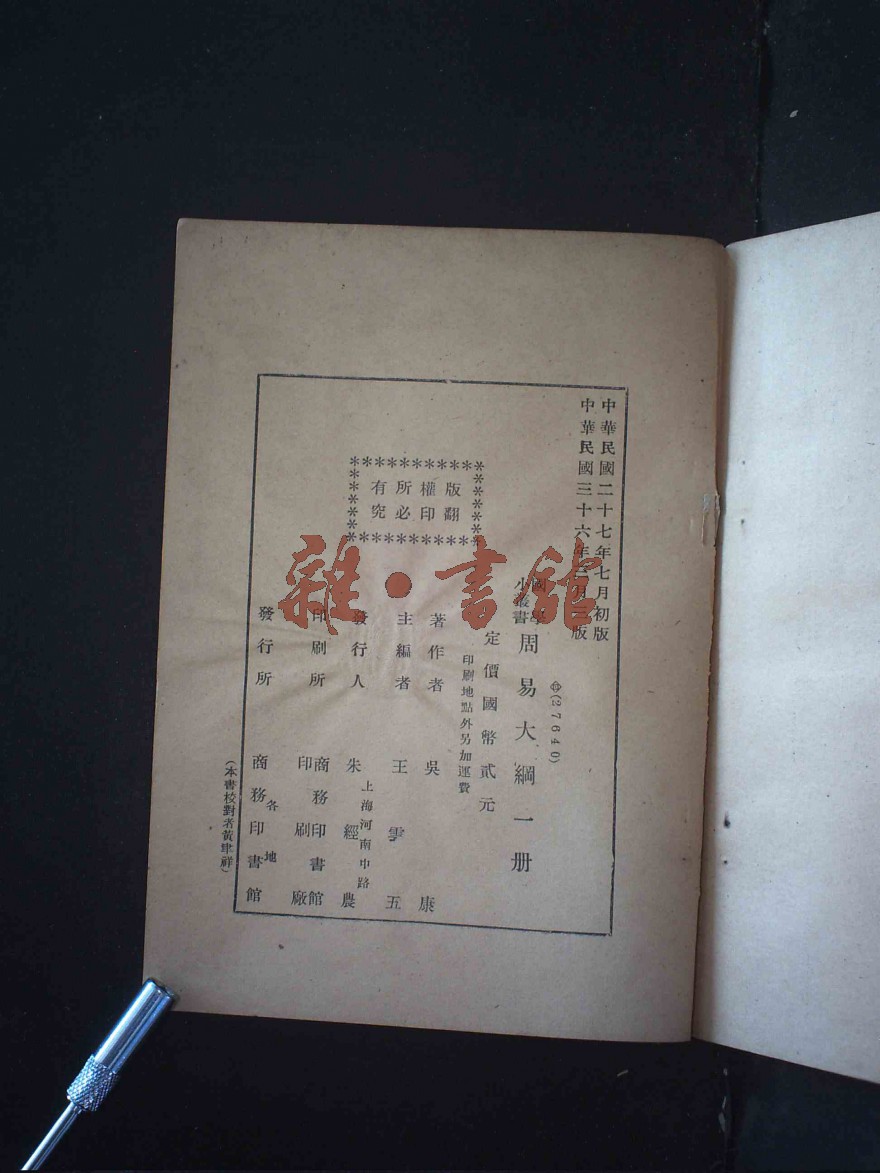 中華民國二十七年七月初版
中華民國三十六年三月三版
(27640)
國學
小叢書
周易大綱一册
定價國幣貳元
印刷地點外另加運費
版權所有
翻印必究
著作者 吳康
主編者 王雲五
上海河南中路
發行人 朱經農
印刷所 商務印書館
印刷廠
各地
發行所 商務印書館
(本書校對者黃聿祥)
雜·書館